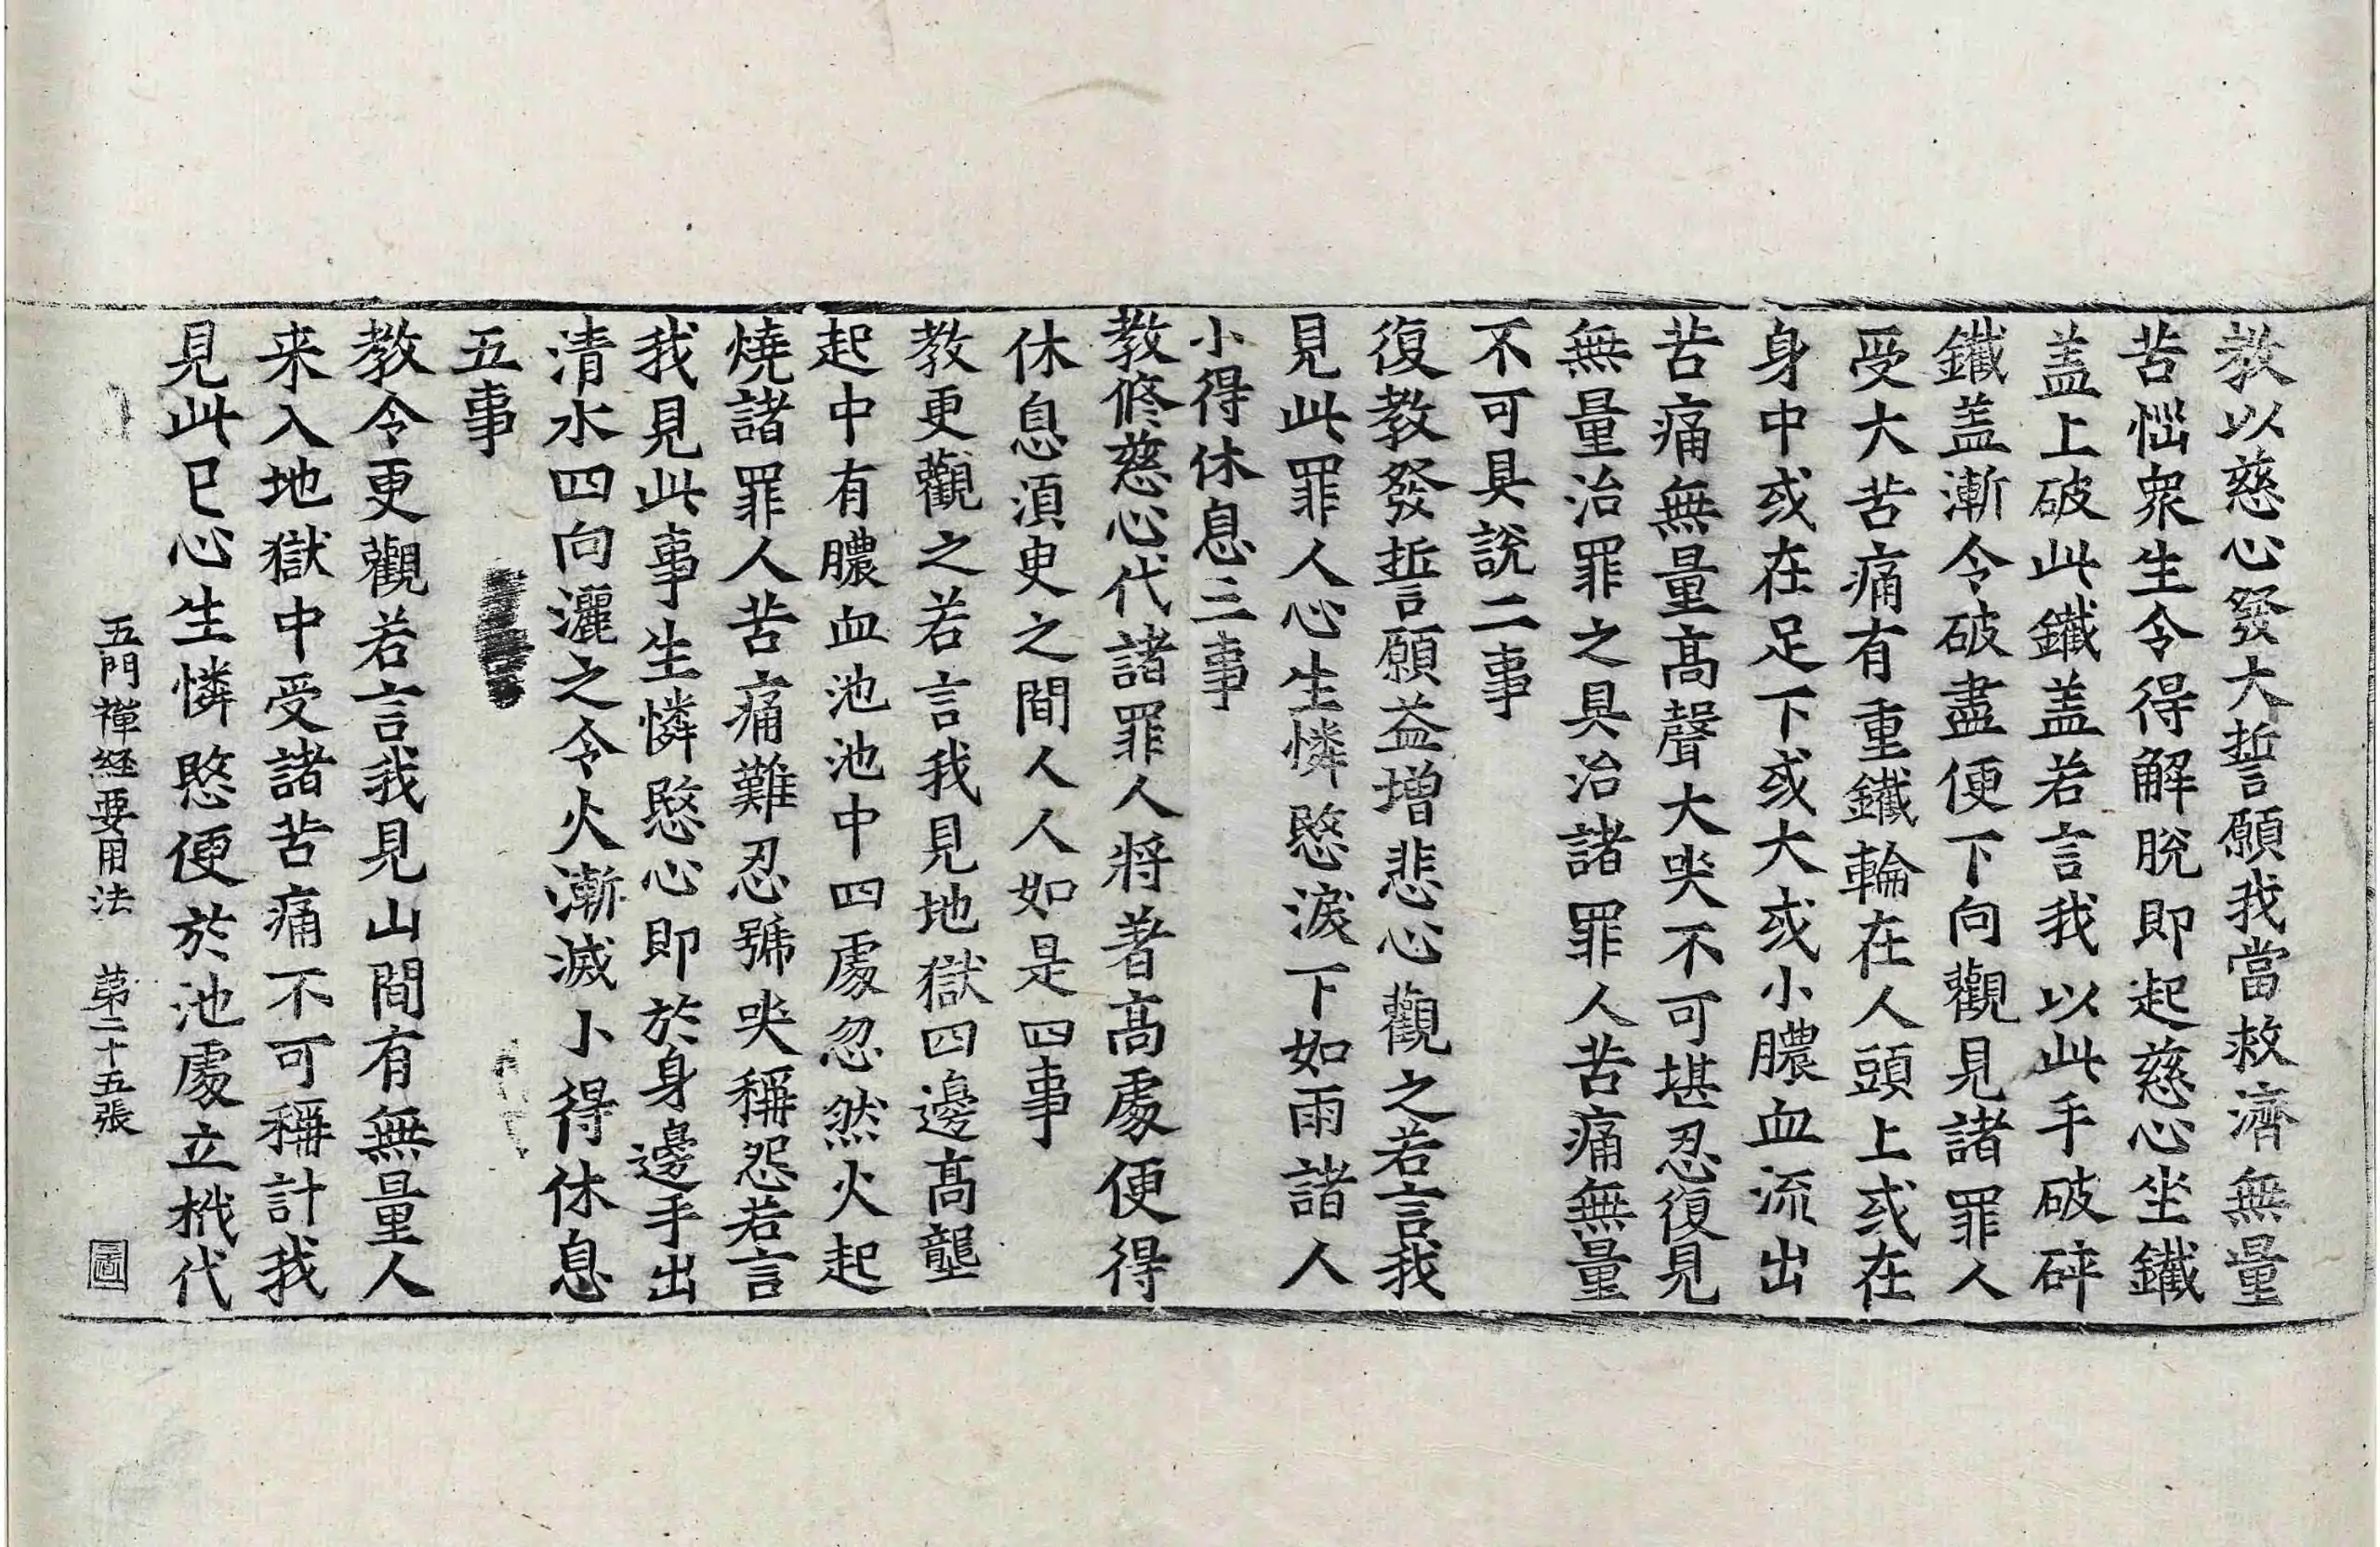 教以慈心發大誓願我當救濟無量
苦惱衆生令得解脫即起慈心坐鐵
盖上破此鐵盖若言我以此手破碎
鐵盖漸令破盡便下向觀見諸罪人
受大苦痛有重鐵輪在人頭上或在
身中或在足下或大或小膿血流出
苦痛無量髙聲大哭不可堪忍復見
無量治罪之具治諸罪人苦痛無量
不可具說二事
復教發誓願益增悲心觀之若言我
見此罪人心生憐愍淚下如雨諸人
小得休息三事
教修慈心代諸罪人將著髙處便得
休息須臾之間人人如是四事
教更觀之若言我見地獄四邊髙壟
起中有膿血池池中四處忽然火起
燒諸罪人苦痛難忍號哭稱怨若言
我見此事生憐愍心即於身邊手出
清水四向灑之令火漸滅小得休息
五事
教令更觀若言我見山間有無量人
来入地獄中受諸苦痛不可稱計我
見此已心生憐愍便於池處立栰代
五門禪経要用法　第二十五張　圖